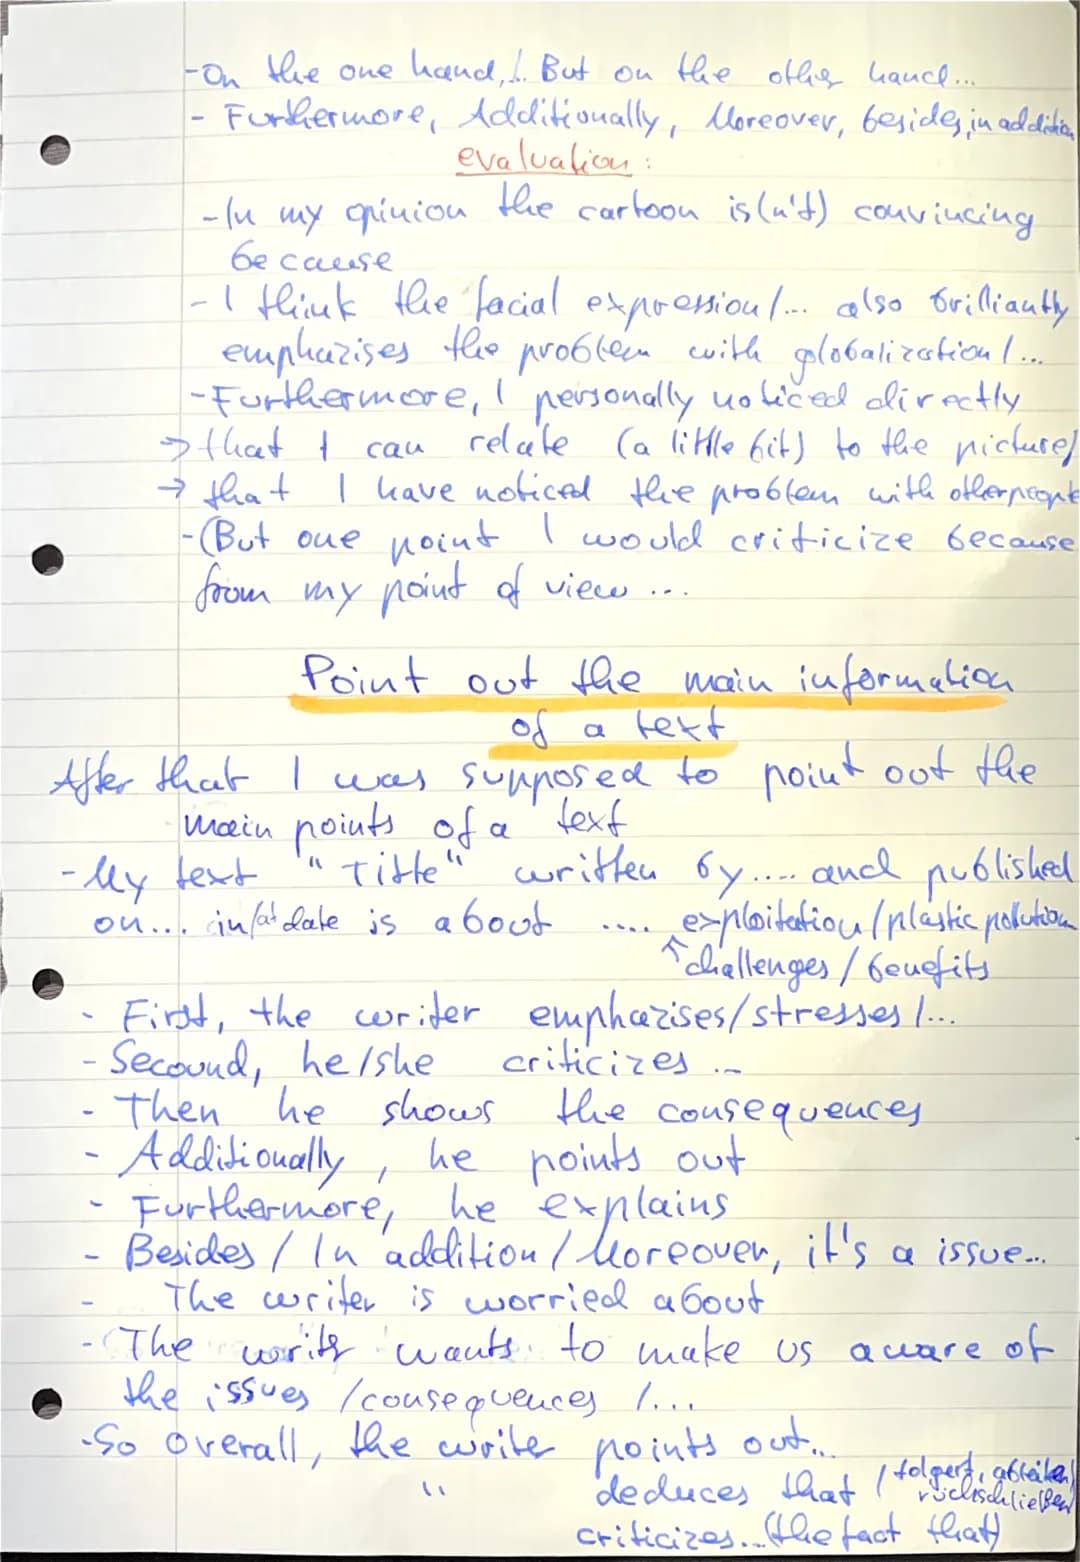 -On the one hand,... But on the other hand...
- Furthermore, Additionally, Moreover, besides, in addition
evaluation:
-In my opinion the cartoon is(n't) convincing
because
-I think the facial expression/... also brilliantly
emphazises the problem with globalization/...
-Furthermore, I personally noticed directly
→ that I can relate (a little bit) to the picture/
→ that I have noticed the problem with other people
-(But one point I would criticize because
from my point of view ...
Point out the main information
of a text
After that I was supposed to point out the
main points of a text
-My text "Title" written by .... and published
on... in/at date is about .... exploitation/plastic polution
↑ challenges/benefits
- First, the writer emphazises/stresses/...
- Secound, he/she criticizes ...
- Then he shows the consequences
- Additionally, he points out
- Furthermore, he explains
- Besides/In addition/Moreover, it's a issue...
- The writer is worried about
- The writer wants to make us aware of
the issues/consequences /...
-So overall, the writer points out...
" deduces that / folgert, ableiten/
rückschließen
criticizes...(the fact that)